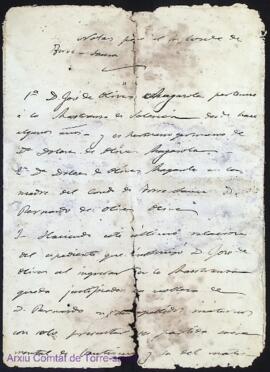 Notas para el Sr. Conde de
Torre-Saura
1º D. José de Olives Magarola pertenece
a la Maestranza de Valencia desde hace
algunos años y es hermano germano de
Dª Dolores de Olives Magarola
2º Dª Dolores de Olives Magarola es
madre del Conde de Torre-Saura D.
Bernardo de Olives Olives
3º Haciendo este último relación
del expediente que D. José de
Olives al ingresar en la Maestranza
queda justificada la nobleza de
D. Bernardo
con solo presentar la partida sacra
mental de y la del matri
Arxiu Comtal de Torre-s